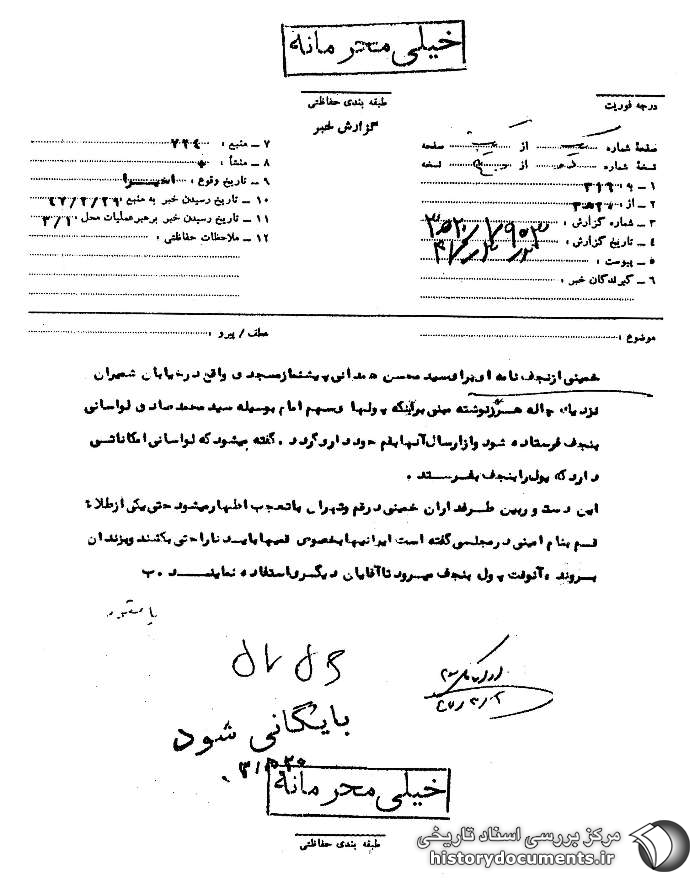 خیلی محرمانه
طبقه بندی حفاظتی
گزارش خبر
درجه فوریت
صفحهٔ شماره یک از یک صفحه
نسخهٔ شماره از نسخه
۱ ــ به : ۳۱۶
۲ ــ از :
۳ ــ شماره گزارش :
۴ ــ تاریخ گزارش :
۵ ــ پیوست :
۶ ــ گیرندگان خبر :
۷ ــ منبع : ۷۷۴
۸ ــ منشأ :
۹ ــ تاریخ وقوع : اخیرا
۱۰ ــ تاریخ رسیدن خبر به منبع : ۴۷/۲/۲۹
۱۱ ــ تاریخ رسیدن خبر برهبرعملیات محل : ۳/۱
۱۲ ــ ملاحظات حفاظتی :
موضوع :
عطف / پیرو :
خمینی ازنجف نامه ای برای سید محسن همدانی پیشنماز مسجدی واقع درخیابان شمیران
نزدیک چاله هرز نوشته مبنی براینکه پولها و سهم امام بوسیله سید محمد صادق لواسانی
بنجف فرستاده شود و از ارسال آنها بقم خودداری گردد . گفته میشود که لواسانی امکاناتی
دارد که پول را بنجف بفرستد .
این دستور بین طرفداران خمینی در قم و تهران با تعجب اظهار میشود حتی یکی از طلاب
قم بنام امینی در مجلسی گفته است ایرانیها بخصوص قمیها باید ناراحتی بکشند و بزندان
بروند و آنوقت پول بنجف میرود تا آقایان دیگر استفاده نمایند . ب
بایگانی شود
خیلی محرمانه
طبقه بندی حفاظتی
مرکز بررسی اسناد تاریخی
historydocuments.ir